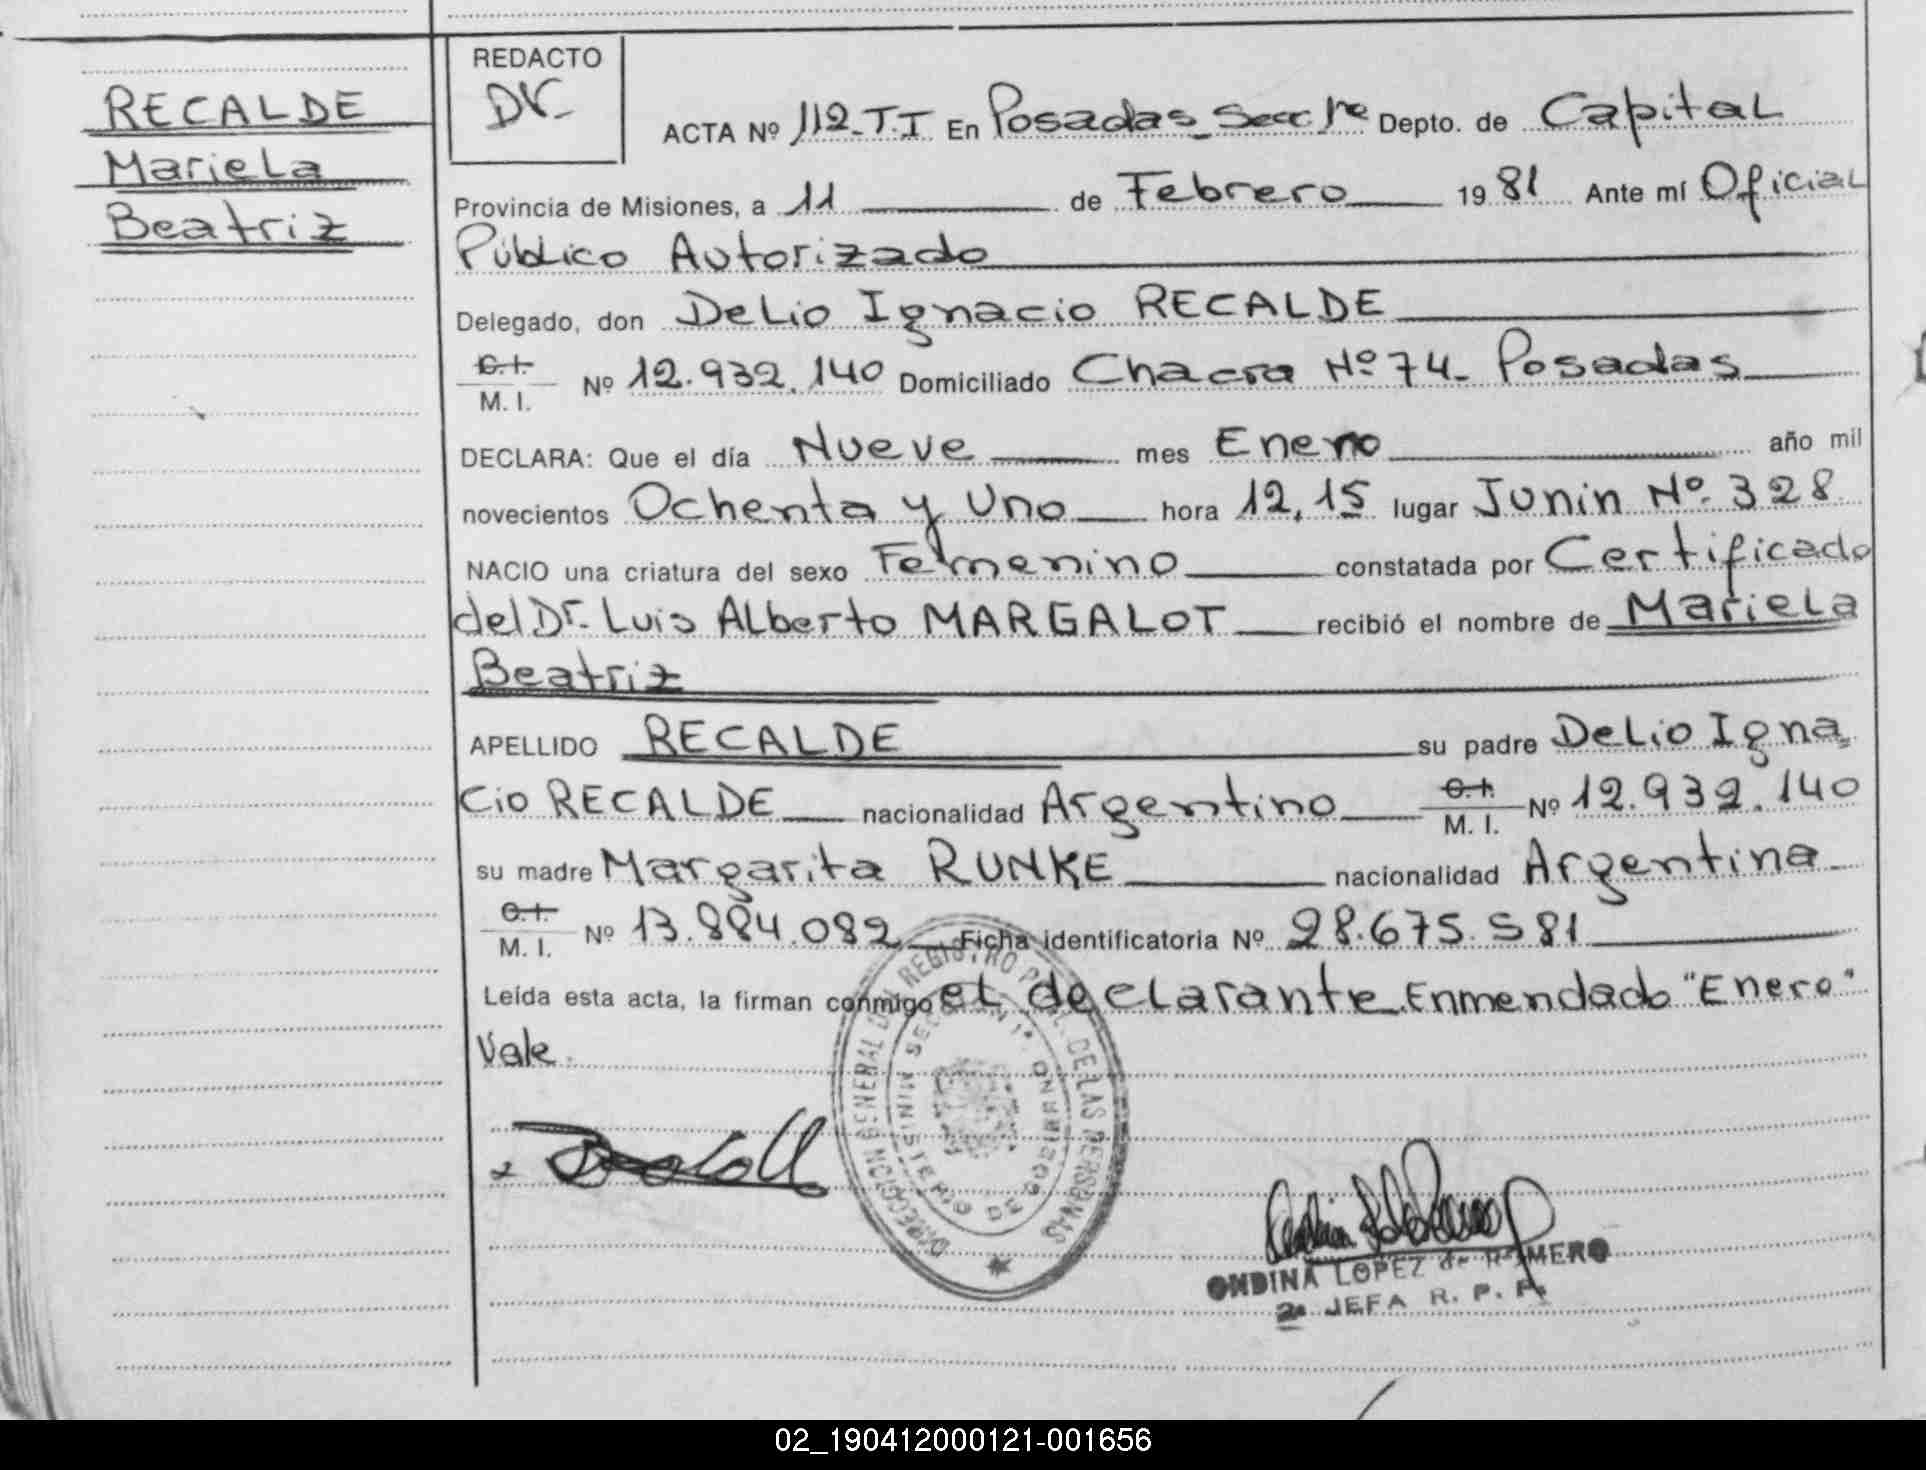 RECALDE
Mariela
Beatriz
REDACTO
DR-
ACTA Nº 112-T.I En Posadas-Secc 1ra Depto. de Capital
Provincia de Misiones, a 11 de Febrero 1981 Ante mí Oficial
Público Autorizado
Delegado, don Delio Ignacio RECALDE
C.I.
M. I. Nº 12.932.140 Domiciliado Chacra Nº 74- Posadas
DECLARA: Que el día Nueve mes Enero año mil
novecientos Ochenta y Uno hora 12,15 lugar Junin Nº 328
NACIO una criatura del sexo Femenino constatada por Certificado
del Dr. Luis Alberto MARGALOT recibió el nombre de Mariela
Beatriz
APELLIDO RECALDE su padre Delio Igna
cio RECALDE nacionalidad Argentino C.I.
M. I. Nº 12.932.140
su madre Margarita RUNKE nacionalidad Argentina
C.I.
M. I. Nº 13.884.082 Ficha identificatoria Nº 28.675.581
Leída esta acta, la firman conmigo el declarante. Enmendado "Enero"
Vale.
DIRECCION GENERAL DEL REGISTRO PCIAL DE LAS PERSONAS
MINISTERIO DE GOBIERNO
ONDINA LOPEZ de ROMERO
2a JEFA R. P. P.
02_190412000121-001656